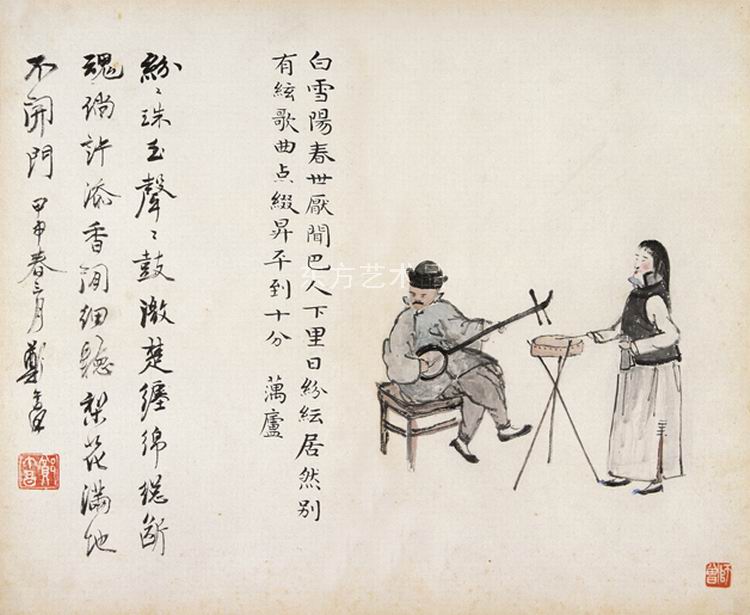 白雪陽春世厭聞巴人下里日紛紜居然別
有絃歌曲点綴昇平到十分 蕅廬
紛〻珠玉聲〻鼓激楚纏綿總斷
魂倘許添香閒細聽梨花滿地
不開門 甲申春三月鄭
师曾
东方艺术品